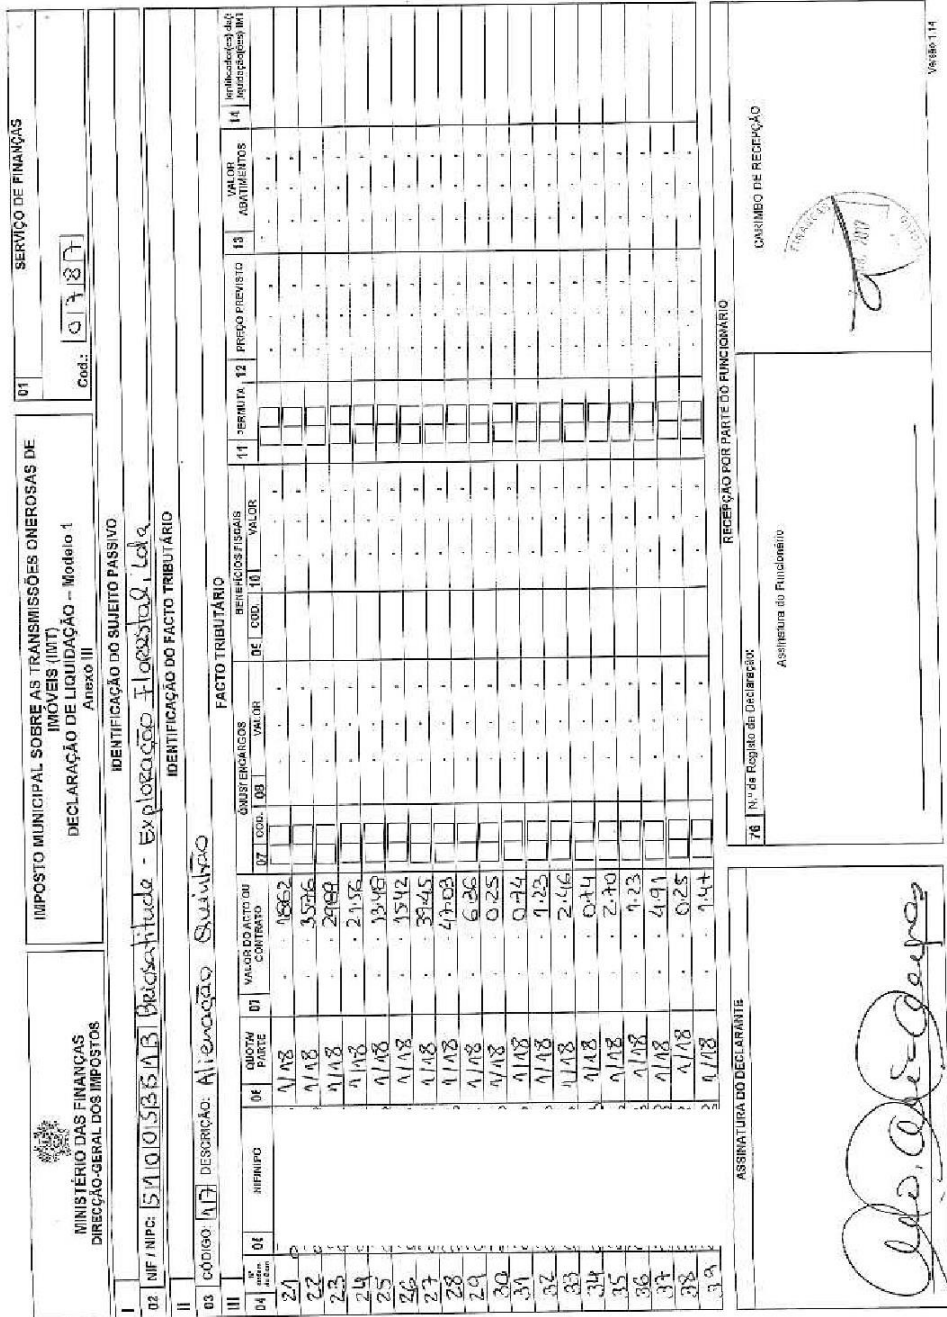 MINISTÉRIO DAS FINANÇAS
DIRECÇÃO-GERAL DOS IMPOSTOS
IMPOSTO MUNICIPAL SOBRE AS TRANSMISSÕES ONEROSAS DE
IMÓVEIS (IMT)
DECLARAÇÃO DE LIQUIDAÇÃO – Modelo 1
Anexo III
01 SERVIÇO DE FINANÇAS
Cod.: 0787
I IDENTIFICAÇÃO DO SUJEITO PASSIVO
02 NIF / NIPC: Briosatitude - Exploração Florestal, Lda
II IDENTIFICAÇÃO DO FACTO TRIBUTÁRIO
03 CÓDIGO: 17 DESCRIÇÃO: Alienação Quinhão
III FACTO TRIBUTÁRIO
ÓNUS/ ENCARGOS BENEFÍCIOS FISCAIS
04 05 NIF/NIPC 06 QUOTA/ PARTE 07 VALOR DO ACTO OU CONTRATO 07 COD. 08 VALOR 09 COD. 10 VALOR 11 PERMUTA 12 PREÇO PREVISTO 13 VALOR ABATIMENTOS 14 Identificador(es) da(s) liquidação(ões) IMI
21 1/18 1862
22 1/18 35.76
23 1/18 29.89
24 1/18 21.56
25 1/18 13.48
26 1/18 15.42
27 1/18 39.45
28 1/18 47.03
29 1/18 6.36
30 1/18 0.25
31 1/18 0.74
32 1/18 1.23
33 1/18 2.46
34 1/18 0.74
35 1/18 2.70
36 1/18 1.23
37 1/18 4.91
38 1/18 0.25
39 1/18 1.47
ASSINATURA DO DECLARANTE
RECEPÇÃO POR PARTE DO FUNCIONÁRIO
76 N.º de Registo da Declaração:
Assinatura do Funcionário
CARIMBO DE RECEPÇÃO
FINANÇAS
2017
Versão 1.14